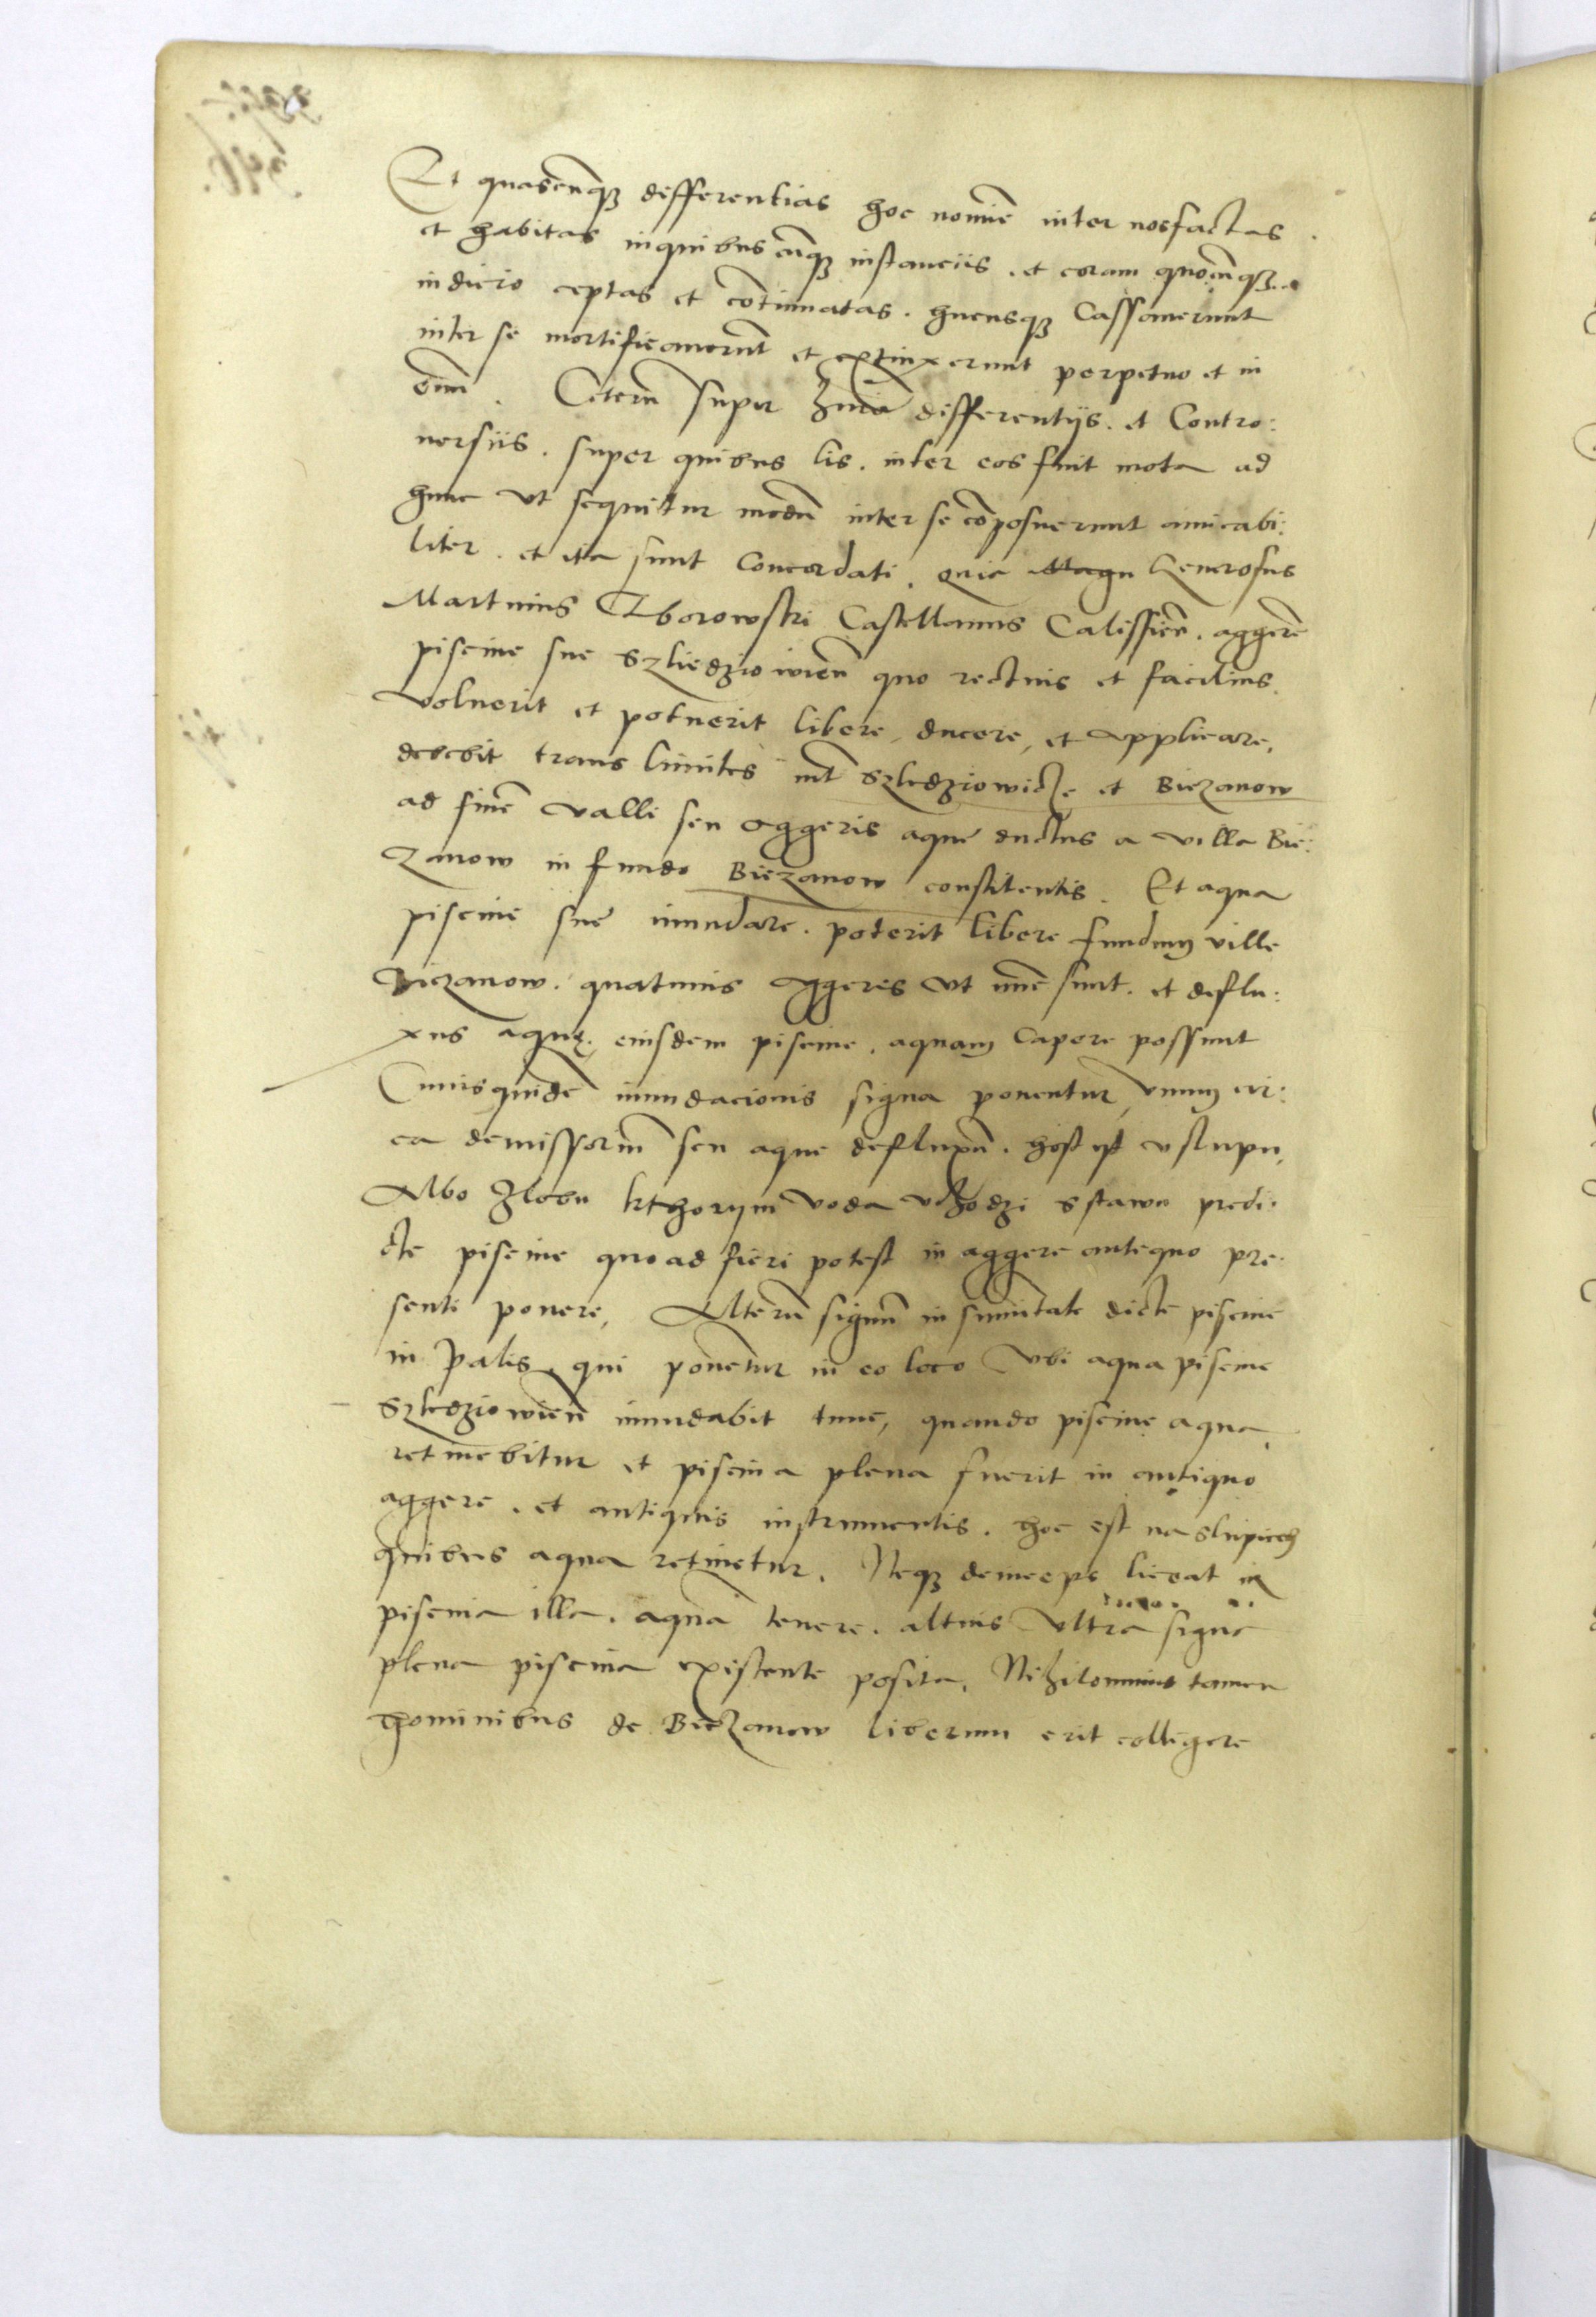 Et quascūqʒ differentias hoc nomīe inter nos factas
et habitas inquibuscūqʒ instanciis . et coram quocūqʒ
iudicio ceptas et cōtinuatas . hucusqʒ Cassauerunt
inter se mortificauerūt et extinxerunt perpetuo et in
Ceterū super differentiis . et Contro:
uersiis . super quibus lis . inter eos fuit mota ad
hunc vt sequitur modū inter se cōposuerunt amicabi:
liter . et ita sunt Concordati . quia Magn Generosus
Martinus Sborowski Castellanus Calissieñ . aggerē
piscine sue Szliedziowieñ quo rectius et facilius
voluerit et potuerit libere, ducere, et applicare,
debebit trans limites int̄ Szledziowicze et Biezanow
ad finē valli seu aggeris aque ductus a villa Bie:
zanow in fundo Biezanow constitentis . Et aqua
piscine sue inundare . poterit libere fundum ville
Biezanow . quatinus aggeres vt nūc sunt . et deflu:
xus aquę . eiusdem piscine . aquam capere possunt
Cuiusquidē inundacionis signa ponentur, vnum cir:
ca demissoriū seu aque defluxū . hoc est vslupu,
Albo Zlobu kthorym voda vchodzi s stawu predi:
cte piscine quoad fieri potest in aggere antiquo pre:
senti ponere, Alterū signū in sumitate dicte piscine
in palis, qui ponētur in eo loco vbi aqua piscine
Szledziowieñ inundabit tunc, quando piscine aqua
retinebitur et piscina plena fuerit in antiquo
aggere . et antiquis instrumentis . hoc est na slupiech
quibus aqua retinetur . Neqʒ deinceps liceat in
piscina illa . aquā tenere . altius vltra signa
plena piscina existente posita, Nihilominus tamen
hominibus de Biezanow liberum erit colligere